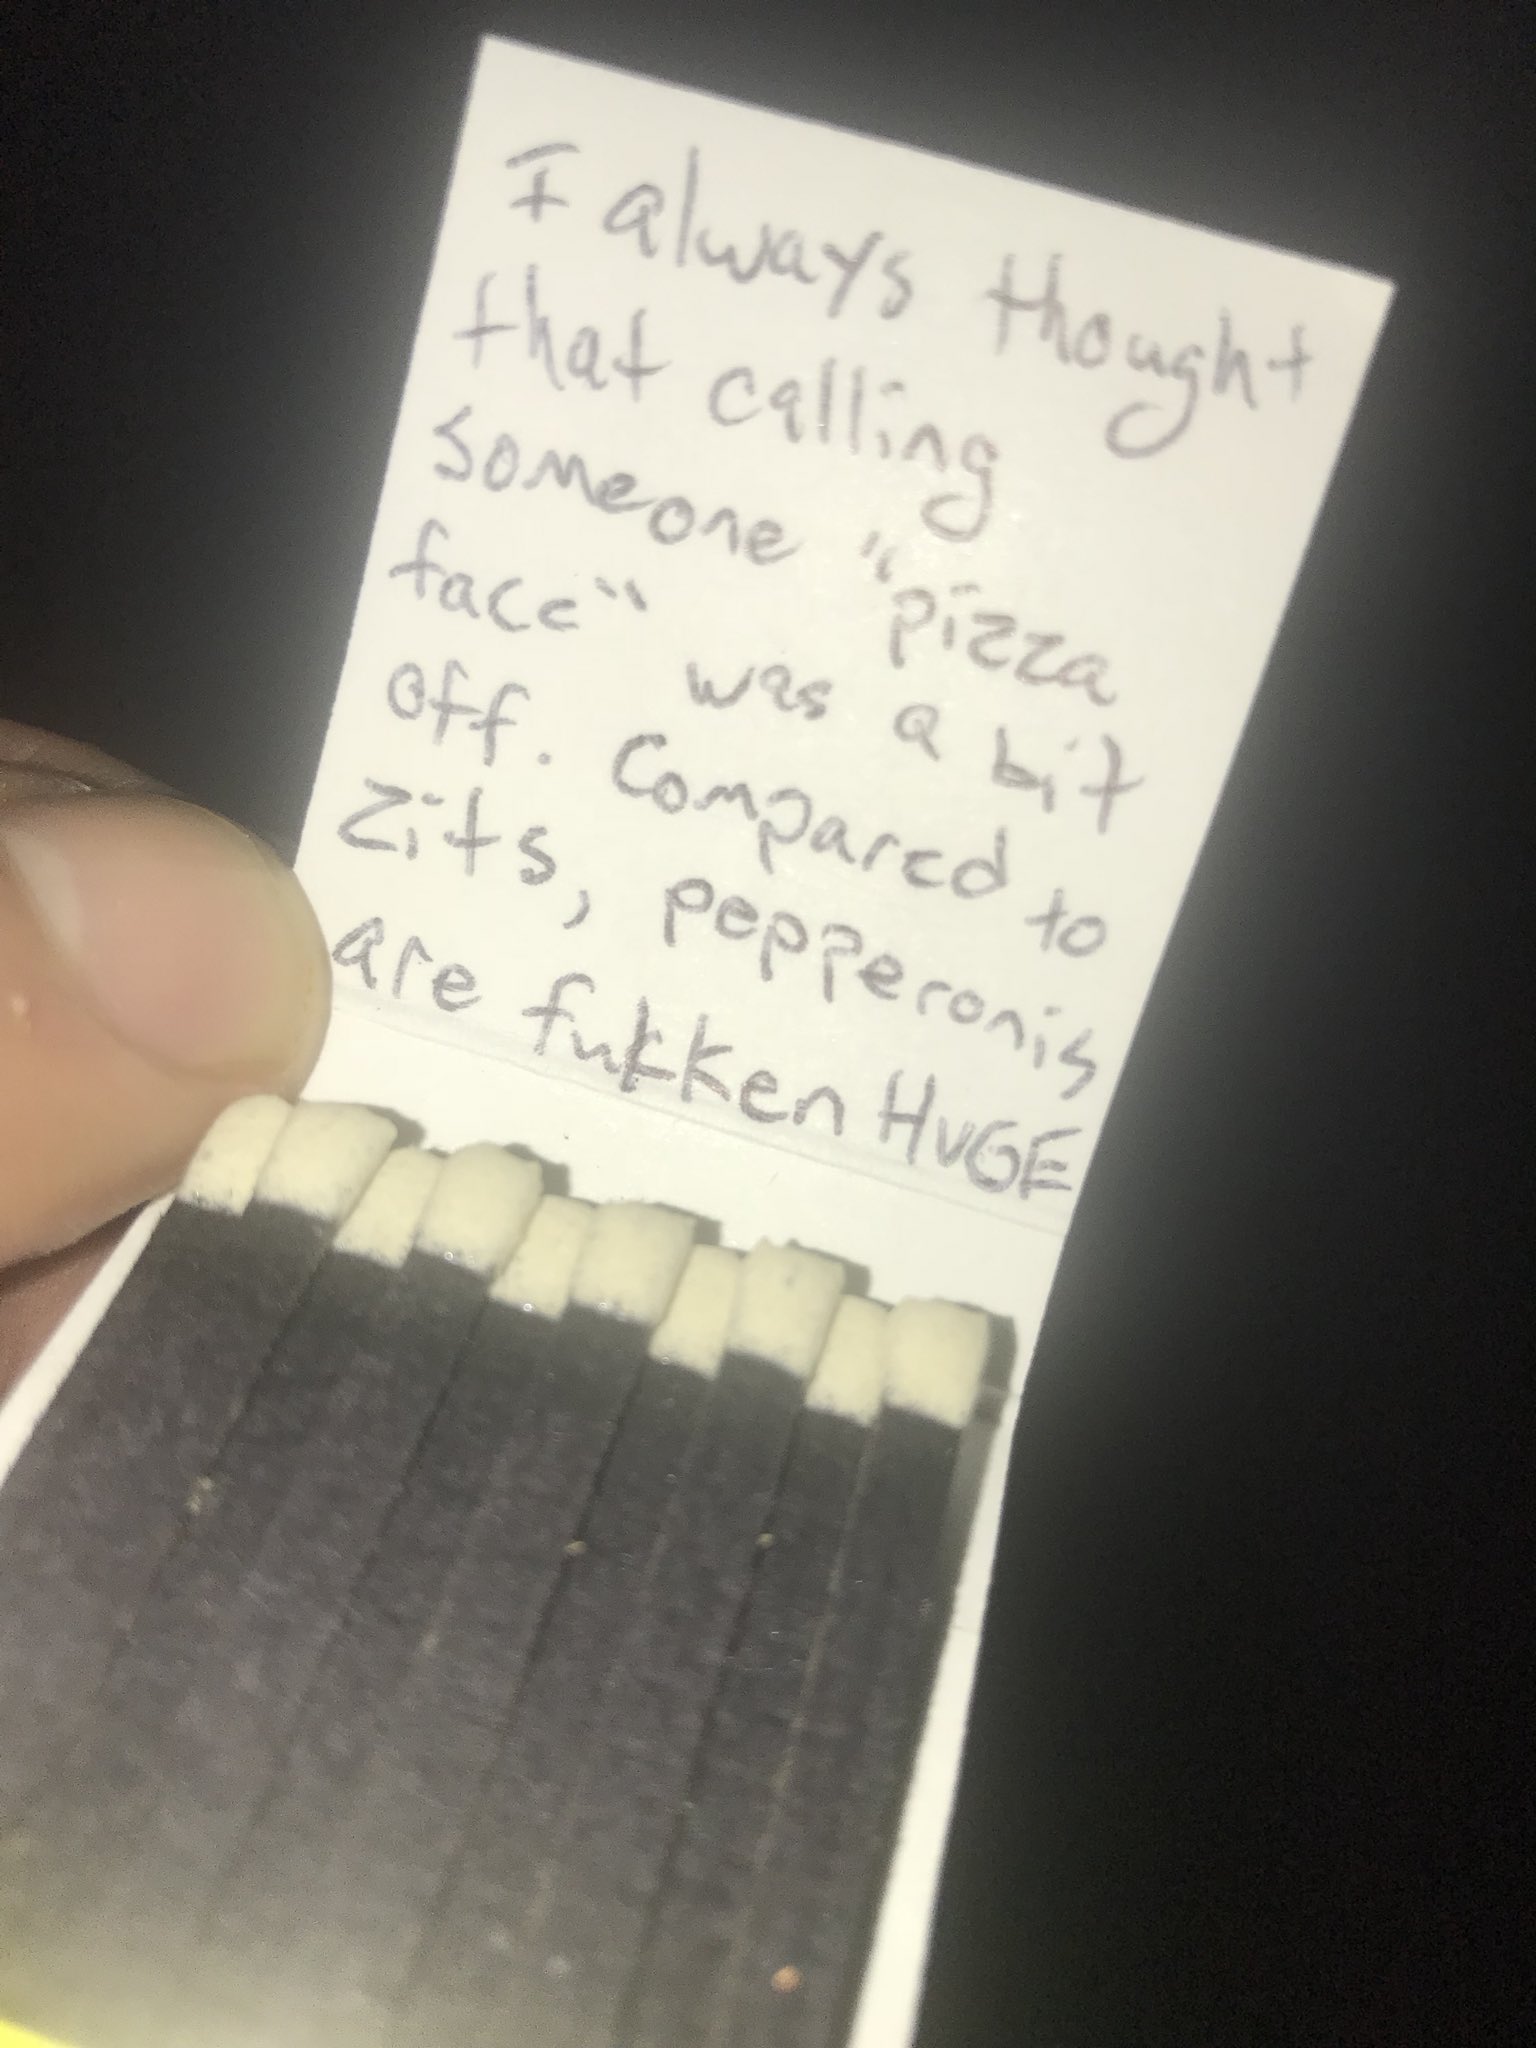 I always thought
that calling
someone "pizza
face" was a bit
off. Compared to
Zits, pepperonis
are fukken HUGE